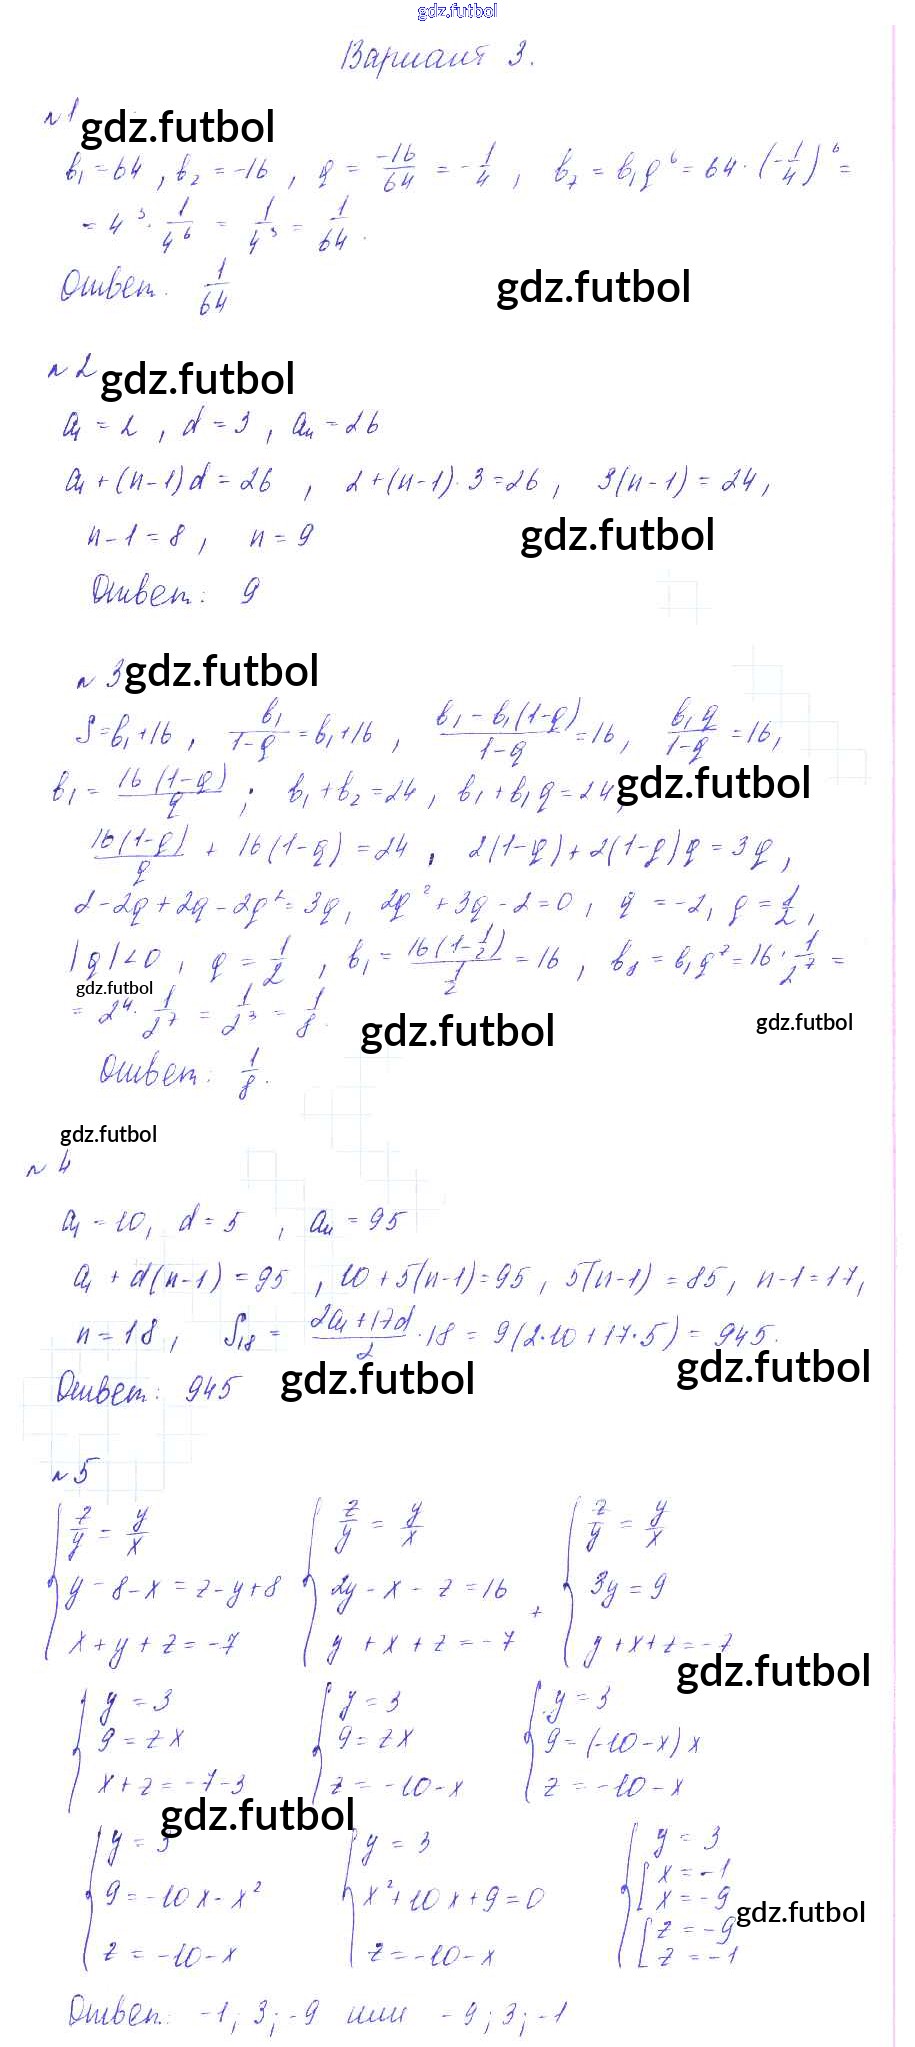 gdz.futbol
Вариант 3.
№1 gdz.futbol
b₁=64, b₂=-16, q = -16/64 = -1/4, b₇ = b₁q⁶ = 64·(-1/4)⁶ =
= 4³·1/4⁶ = 1/4³ = 1/64.
Ответ. 1/64
gdz.futbol
№2 gdz.futbol
a₁=2, d=3, aₙ=26
a₁+(n-1)d=26, 2+(n-1)·3=26, 3(n-1)=24,
n-1=8, n=9
gdz.futbol
Ответ: 9
№3 gdz.futbol
S=b₁+16, b₁/(1-q)=b₁+16, (b₁-b₁(1-q))/(1-q)=16, b₁q/(1-q)=16,
b₁=16(1-q)/q; b₁+b₂=24, b₁+b₁q=24,
gdz.futbol
16(1-q)/q + 16(1-q)=24, 2(1-q)+2(1-q)q=3q,
2-2q+2q-2q²=3q, 2q²+3q-2=0, q=-2, q=1/2,
|q|<0, q=1/2, b₁=16(1-1/2)/(1/2)=16, b₈=b₁q⁷=16·1/2⁷=
gdz.futbol
= 2⁴·1/2⁷ = 1/2³ = 1/8.
gdz.futbol
gdz.futbol
Ответ: 1/8.
gdz.futbol
№4
a₁=10, d=5, aₙ=95
a₁+d(n-1)=95, 10+5(n-1)=95, 5(n-1)=85, n-1=17,
n=18, S₁₈=(2a₁+17d)/2·18=9(2·10+17·5)=945.
gdz.futbol
gdz.futbol
Ответ: 945
№5
{ z/y = y/x { z/y = y/x { z/y = y/x
{ y-8-x=z-y+8 { 2y-x-z=16 + { 3y=9
{ x+y+z=-7 { y+x+z=-7 { y+x+z=-7
gdz.futbol
{ y=3 { y=3 { y=3
{ 9=zx { 9=zx { 9=(-10-x)x
{ x+z=-7-3 { z=-10-x { z=-10-x
gdz.futbol
{ y=3 { y=3 { y=3
{ 9=-10x-x² { x²+10x+9=0 { [ x=-1 [ x=-9
{ z=-10-x { z=-10-x { [ z=-9 [ z=-1
gdz.futbol
Ответ: -1; 3; -9 или -9; 3; -1